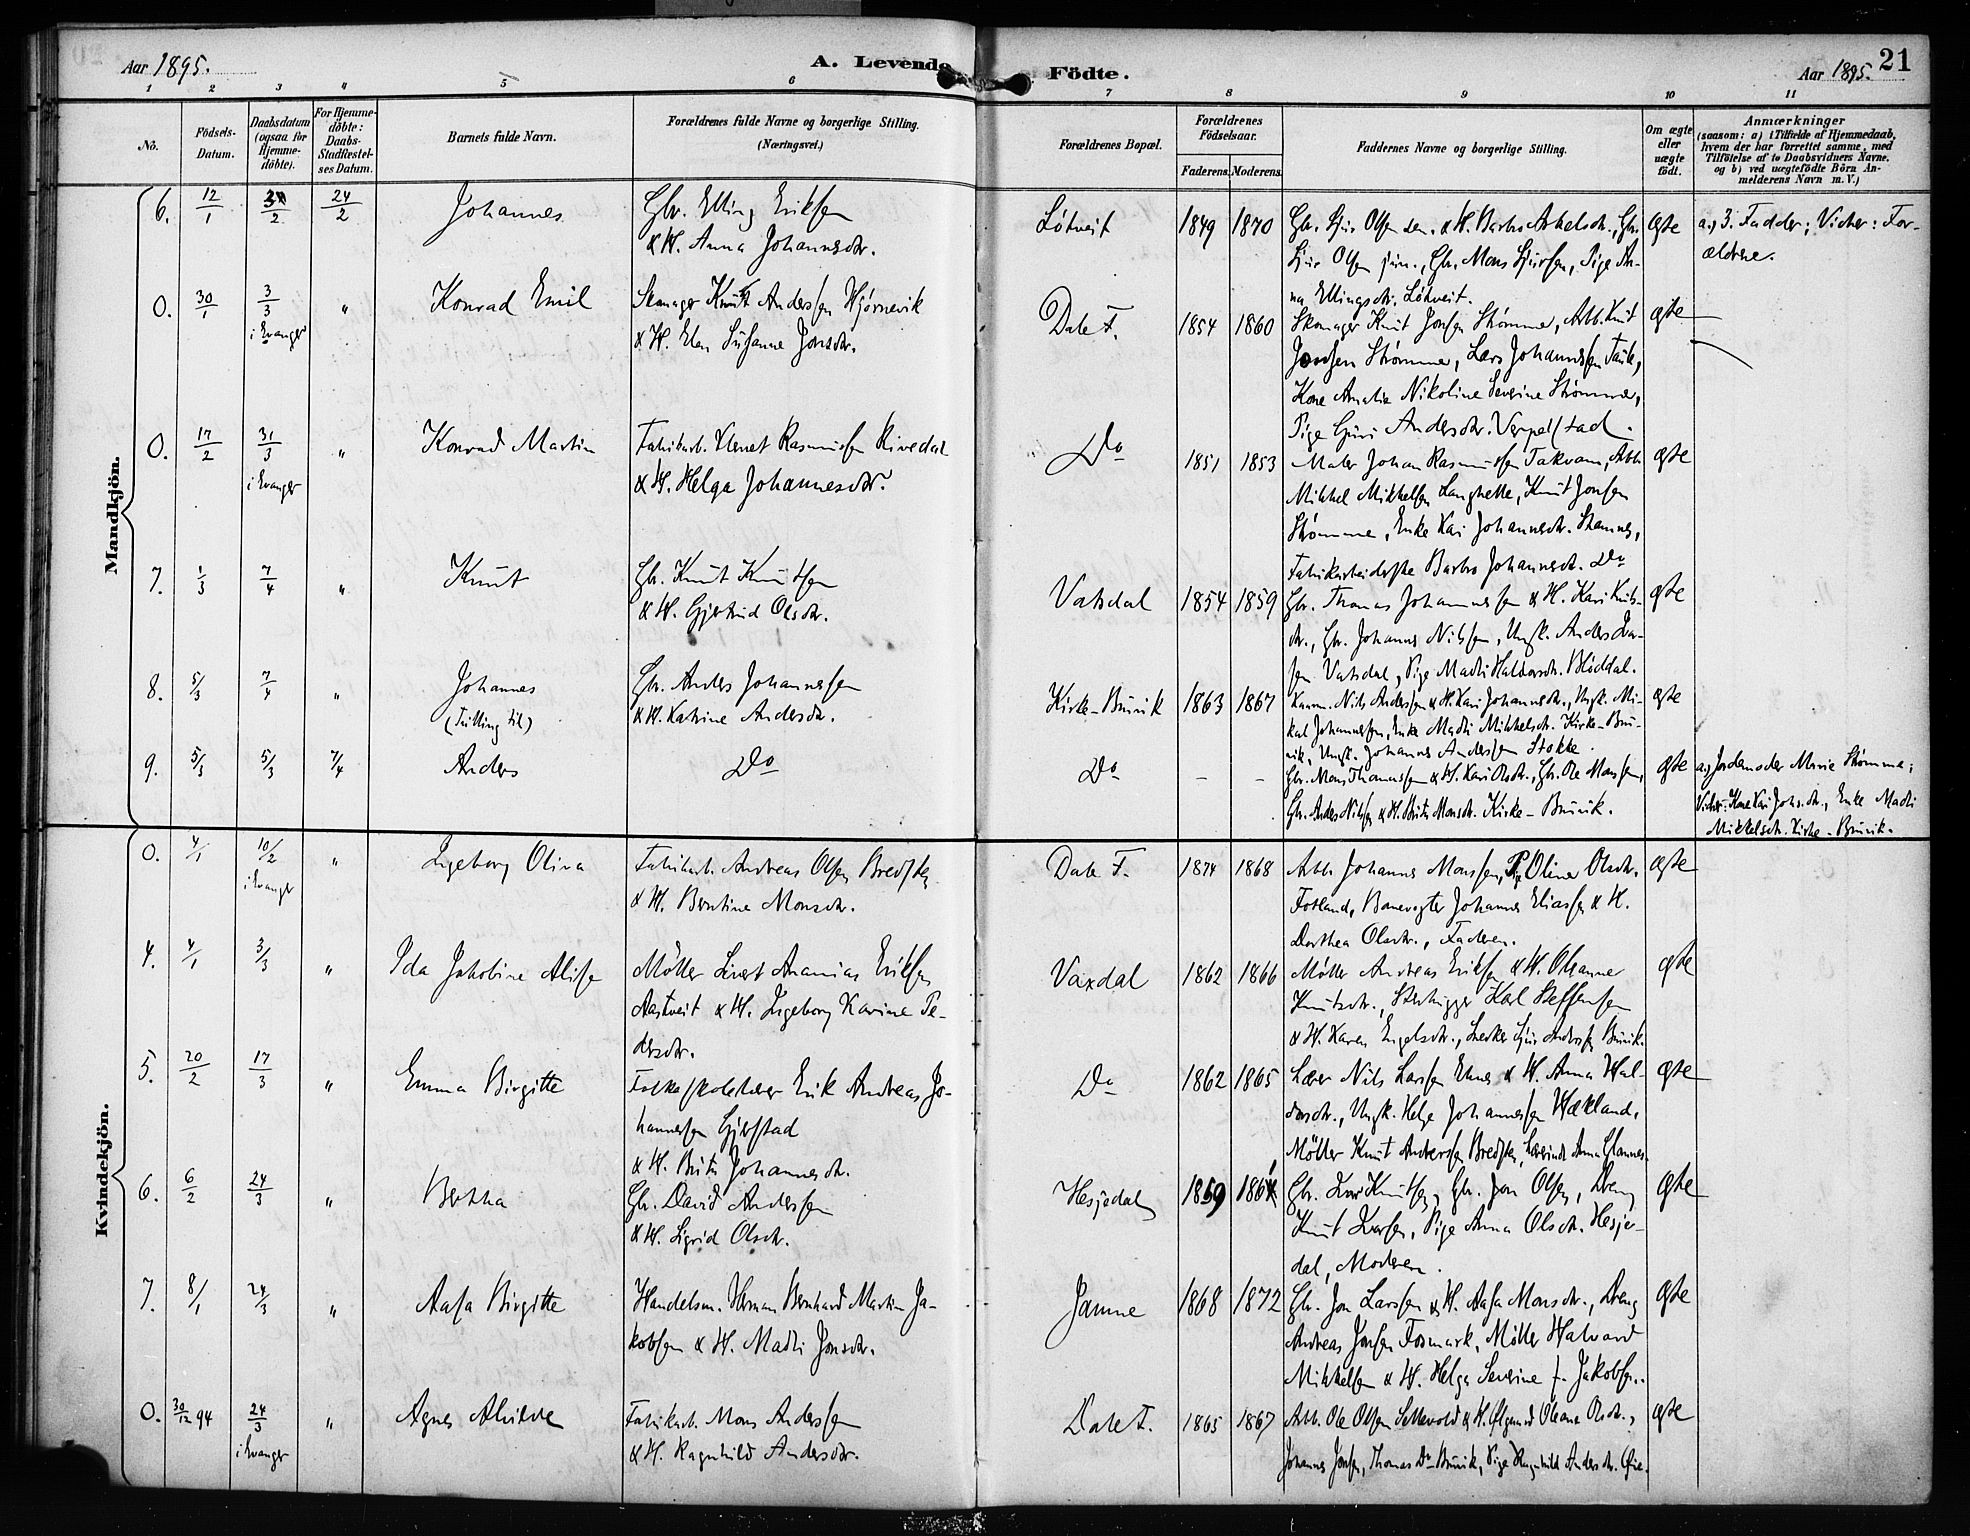 Aar 1895.
A. Levende Födte.
Aar 1895.
21
1 2 3 " 5 6 7 8 9 10 11
No.
Födsels-Datum.
Daabsdatum (ogsaa for Hjemmedöbte).
For Hjemmedöbte: Daabs-Stadfestelses Datum.
Barnets fulde Navn.
Forældrenes fulde Navne og borgerlige Stilling.
(Næringsvei.)
Forældrenes Bopæl.
Forældrenes Födselsaar.
Faderens. Moderens.
Faddernes Navne og borgerlige Stilling.
Om ægte eller uægte födt.
Anmærkninger
(saasom: a) i Tilfælde af Hjemmedaab, hvem der har forrettet samme, med Tilföielse af to Daabsvidners Navne, og b) ved uægtefödte Börn Anmelderens Navn m.V.)
Mandkjön.
6. 12/1 24/2 Johannes
Gbr. Elling Eriksen
& H. Anna Johannesdtr.
Løtveit 1849 1870
Gbr. Sjur Olsen sen. & H. Barbro Askelsdtr., Gbr.
Sjur Olsen jun., Gbr. Mons Sjursen, Pige An-
na Ellingsdtr. Løtveit.
ægte
a.) 3. Fadder; Vidner: For-
ældrene.
0. 30/1 3/3 i Evanger " Konrad Emil
Skomager Knut Andersen Hjørnevik
& H. Elen Susanne Jonsdtr.
Dale F. 1854 1860
Skomager Knut Jonsen Strømme, Arb. Knut
Jonsen Strømme, Lars Johannessen Fauk,
Kone Amalie Nikoline Severine Strømme,
Pige Guri Andersdtr. Verpelstad.
ægte
0. 17/2 31/3 i Evanger " Konrad Martin
Fabrikarb. Klemet Rasmussen Rivedal
& H. Helga Johannesdtr.
Do 1851 1853
Maler Johan Rasmussen Takvam, Arb.
Mikkel Mikkelsen Langhelle, Knut Jonsen
Strømme, Enke Kari Johannesdtr. Stamnes,
Fabrikarbeiderske Barbro Johannesdt. Do
ægte
7. 1/3 7/4 " Knut
Gbr. Knut Knutsen
& H. Gjertrud Olsdtr.
Vatsdal 1854 1859
Gbr. Thomas Johannessen & H. Kari Knuts-
dtr., Gbr. Johannes Nilssen, Ungk. Anders Ivar-
sen Vatsdal, Pige Madli Haldorsdtr. Bløddal.
ægte
8. 5/3 7/4 " Johannes
(Tvilling til)
Gbr. Anders Johannessen
& H. Katrine Andersdtr.
Kirke-Bruvik 1863 1867
Nils Andersen & H. Kari Johannesdtr., Ungk. Mi-
kal Johannessen, Enke Madli Mikkelsdtr. Kirke-Bru-
vik, Ungk. Johannes Andersen Stokke.
ægte
9. 5/3 5/3 7/4 Anders
Do
Do - -
Gbr. Mons Thomassen & H. Kari Olsdtr., Gbr. Ole Monsen,
Gbr. Anders Nilsen & H. Brita Monsdtr. Kirke-Bruvik.
ægte
a.) Jordemoder Marie Strømme;
Vidner: Kone Kari Johs.dtr., Enke Madli
Mikkelsdtr. Kirke-Bruvik.
Kvindekjön.
0. 4/1 10/2 i Evanger " Ingeborg Oliva
Fabrikarb. Andreas Olsen
& H. Berntine Monsdtr.
Dale F. 1874 1868
Arb. Johannes Monsen, Oline Olsdtr.
Fosland, Banevogter Johannes Eliassen & H.
Dorthea Olsdtr., Faderen.
ægte
4. 4/1 3/3 " Ida Jakobine Alise
Møller Sivert Ananias Eriksen
Aastveit & H. Ingeborg Karine Pe-
dersdtr.
Vaxdal 1862 1866
Møller Andreas Eriksen & H. Oleanne
Knutsdtr., Stenhugger Karl Steffensen
& H. Karen Engelsdtr., Snedker Sjur Andersen Bruvik.
ægte
5. 20/2 17/3 " Emma Birgitte
Folkeskolelærer Erik Andreas Jo-
hannessen Gjerstad
& H. Brita Johannesdtr.
Do 1862 1865
Lærer Nils Larsen & H. Anna Hal-
dorsdtr., Ungk. Helge Johannessen Hækland,
Møller Knut Andersen, Lærerinde Anna
ægte
6. 6/2 24/3 " Bertha
Gbr. David Andersen
& H. Sigrid Olsdtr.
Hesjedal 1859
Gbr. Ivar Knutsen, Gbr. Jon Olsen, Dreng
Knut Ivarsen, Pige Anna Olsdtr. Hesje-
dal, Moderen.
ægte
7. 8/1 24/3 " Aasa Birgitte
Handelsm. Herman Bernhard Martin Ja-
kobsen & H. Madli Jonsdtr.
Jamne 1868 1872
Gbr. Jon Larsen & H. Aasa Monsdtr., Dreng
Andreas Jonsen Fosmark, Møller Halvard
Mikkelsen & H. Helga Severine f. Jakobsen.
ægte
0. 30/12 94 24/3 i Evanger " Agnes Alvilde
Fabrikarb. Mons Andersen
& H. Ragnhild Andersdtr.
Dale F. 1865 1867
Arb. Ole Olsen Settevold & H. Oleane Olsdtr.,
Johannes Jonsen, Thomas Do Bruvik, Pige Ragnhild Andersdtr. Øie.
ægte